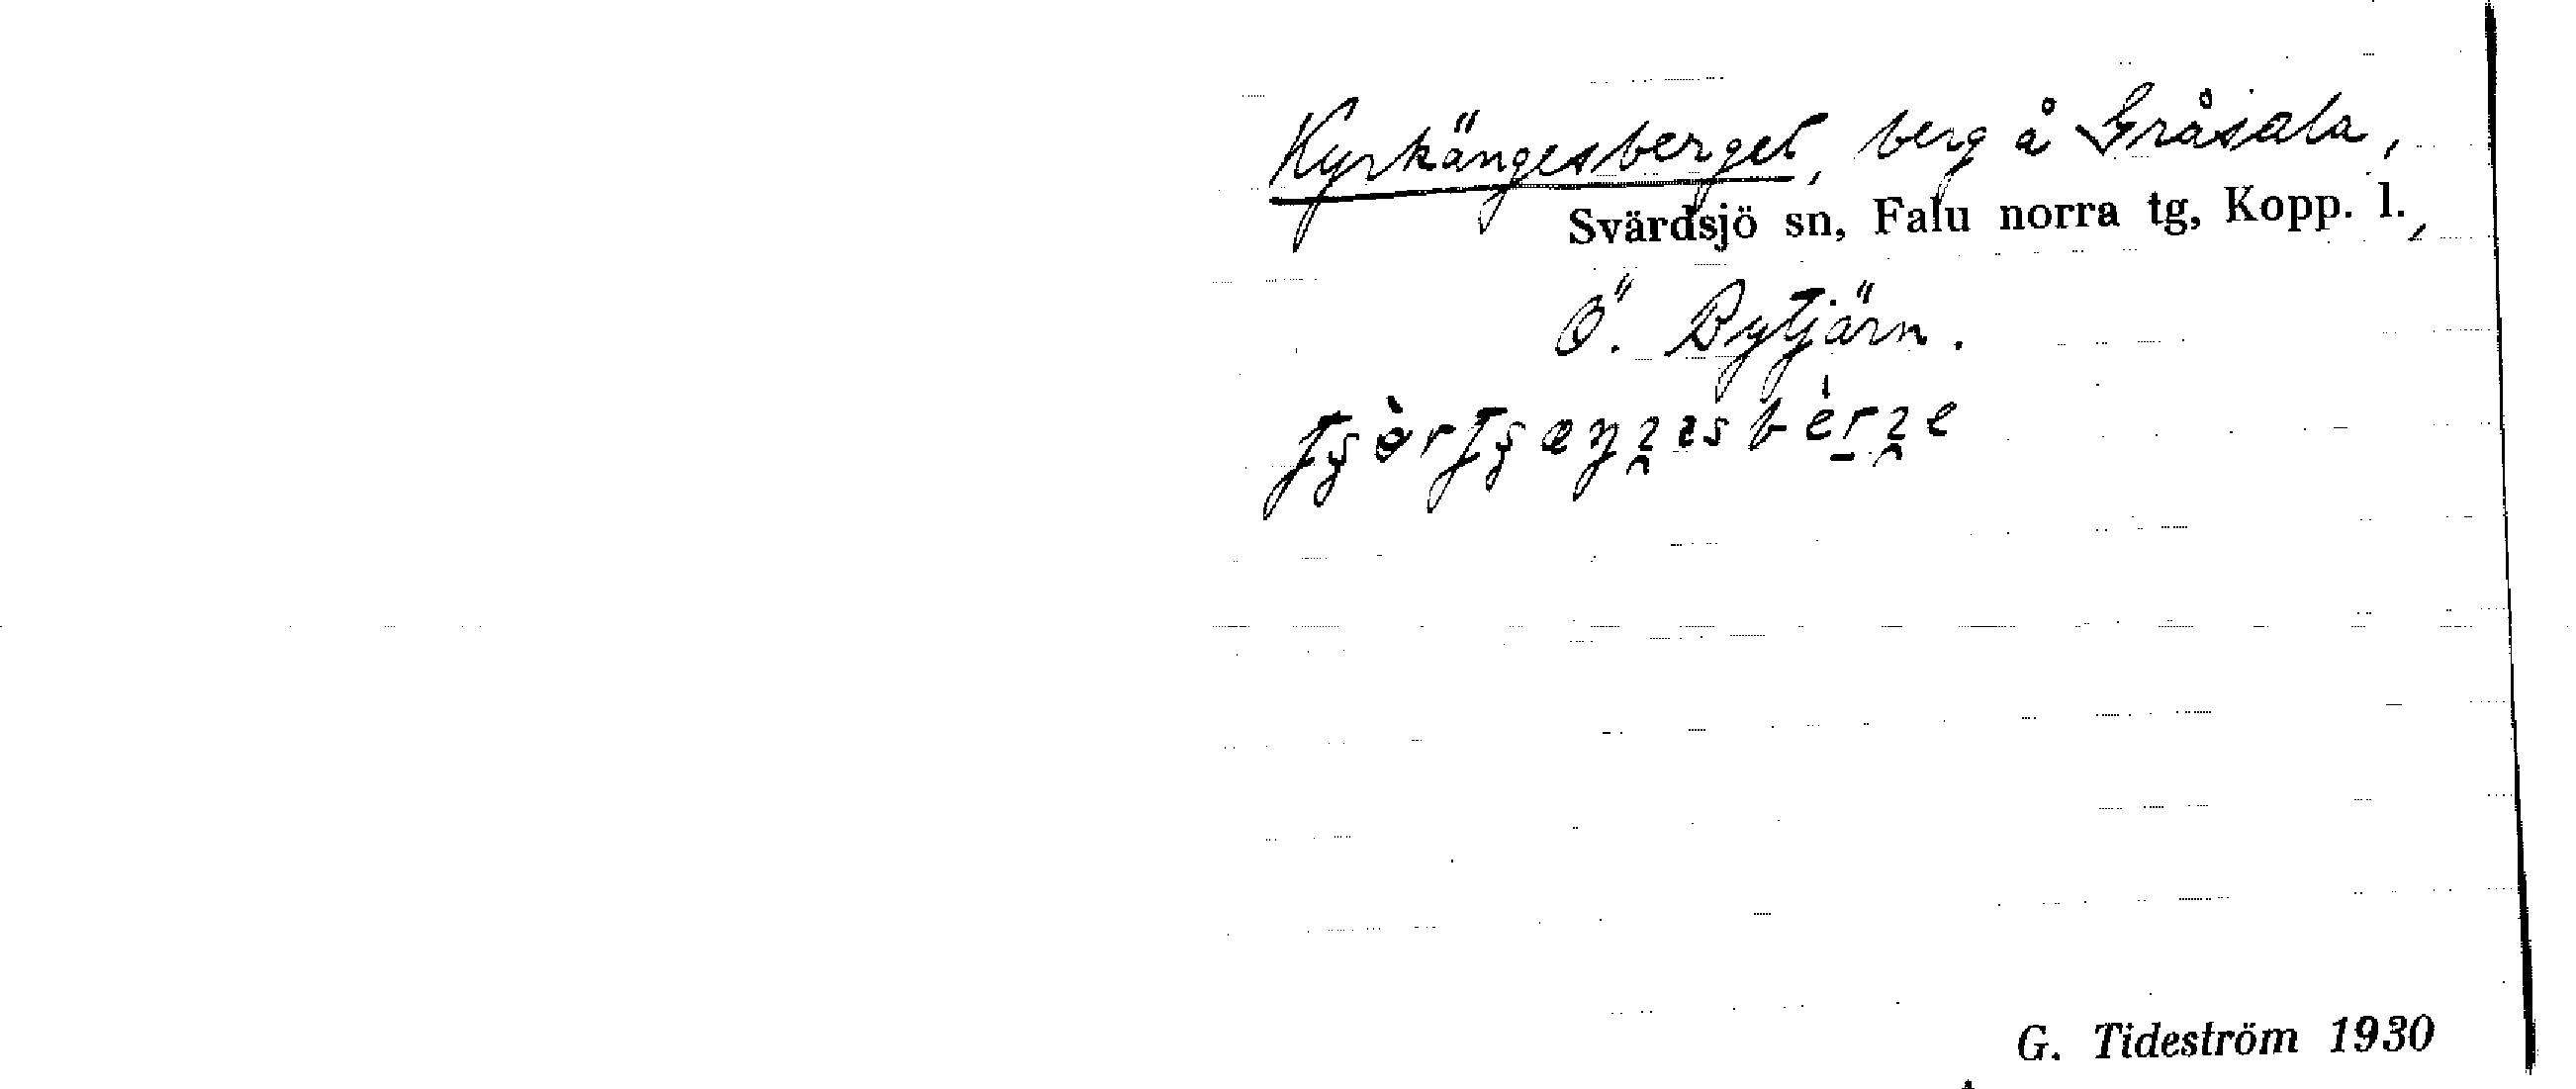 Kyrkängesberget, berg å Gråsala,
Svärdsjö sn, Falu norra tg, Kopp. l.,
Ö. Bytjärn.
G. Tideström 1930